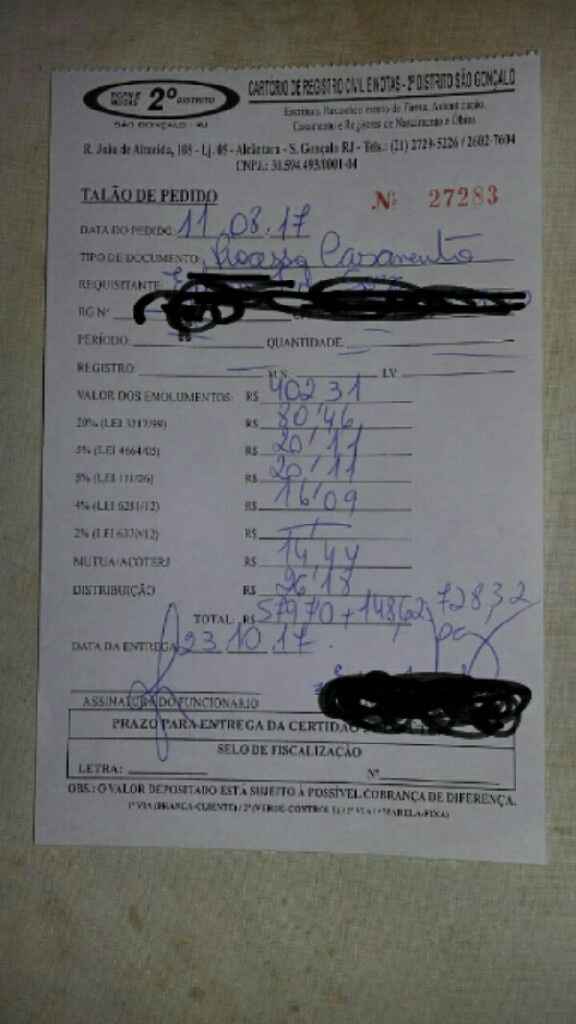 2º DISTRITO
SÃO GONÇALO - RJ
CARTÓRIO DE REGISTRO CIVIL E NOTAS - 2º DISTRITO SÃO GONÇALO
Casamento e Registros de Nascimento e Óbito
R. João de Almeida, 108 - Lj. 05 - Alcântara - S. Gonçalo RJ - Tels.: (21) 2729-5226 / 2602-7604
CNPJ.: 30.594.493/0001-04
TALÃO DE PEDIDO Nº 27283
DATA DO PEDIDO: 11.08.17
TIPO DE DOCUMENTO: Casamento
REQUISITANTE
RG Nº
PERÍODO: QUANTIDADE:
REGISTRO: LV.
VALOR DOS EMOLUMENTOS: R$ 402,31
20% (LEI 3217/99) R$ 80,46
5% (LEI 4664/05) R$ 20,11
5% (LEI 111/06) R$ 20,11
4% (LEI 6281/12) R$ 16,09
2% (LEI 6370/12) R$
MUTUA/ACOTERJ R$ 14,44
DISTRIBUIÇÃO R$ 26,18
TOTAL R$ 579,70 + 148,62 728,32
DATA DA ENTREGA 23.10.17 pg
ASSINATURA DO FUNCIONÁRIO
PRAZO PARA ENTREGA DA CERTIDÃO
SELO DE FISCALIZAÇÃO
LETRA: Nº
OBS.: O VALOR DEPOSITADO ESTÁ SUJEITO À POSSÍVEL COBRANÇA DE DIFERENÇA.
1ª VIA (BRANCA-CLIENTE) / 2ª (VERDE-CONTROLE) / 3ª VIA (AMARELA-FIXA)